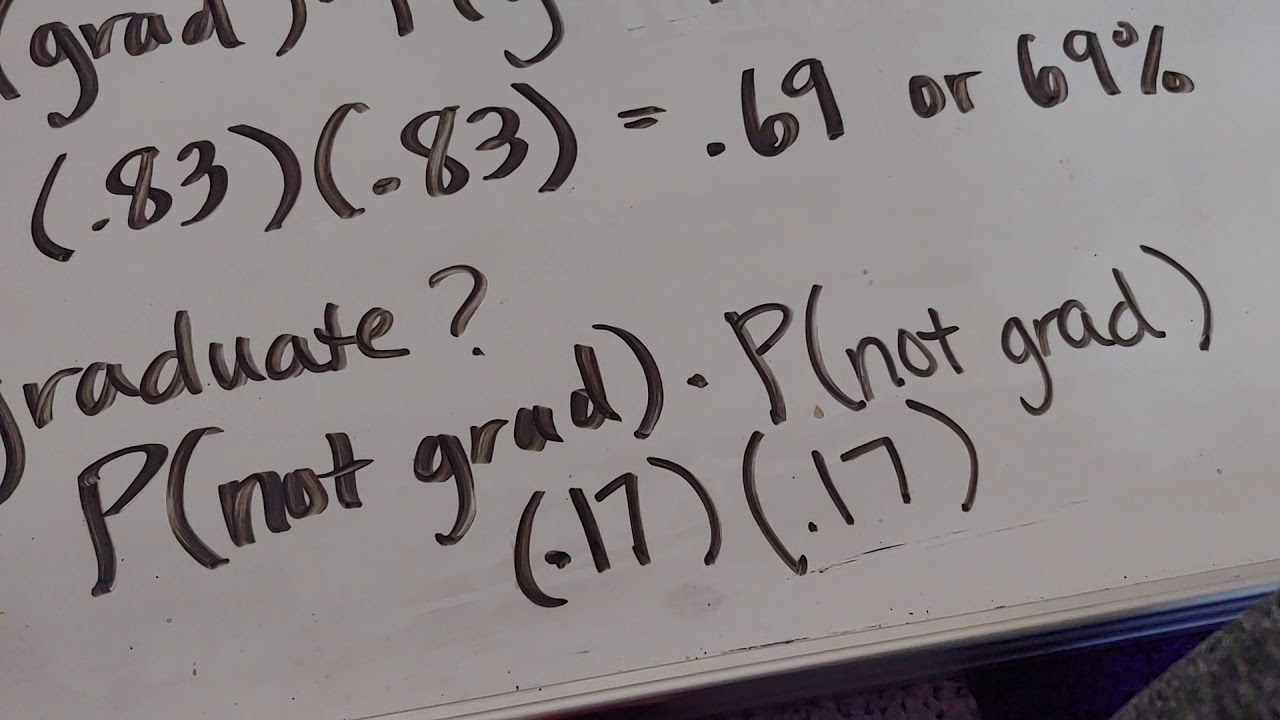 (grad) · P(g
(.83)(.83) = .69 or 69%
graduate?
P(not grad) · P(not grad)
(.17)(.17)